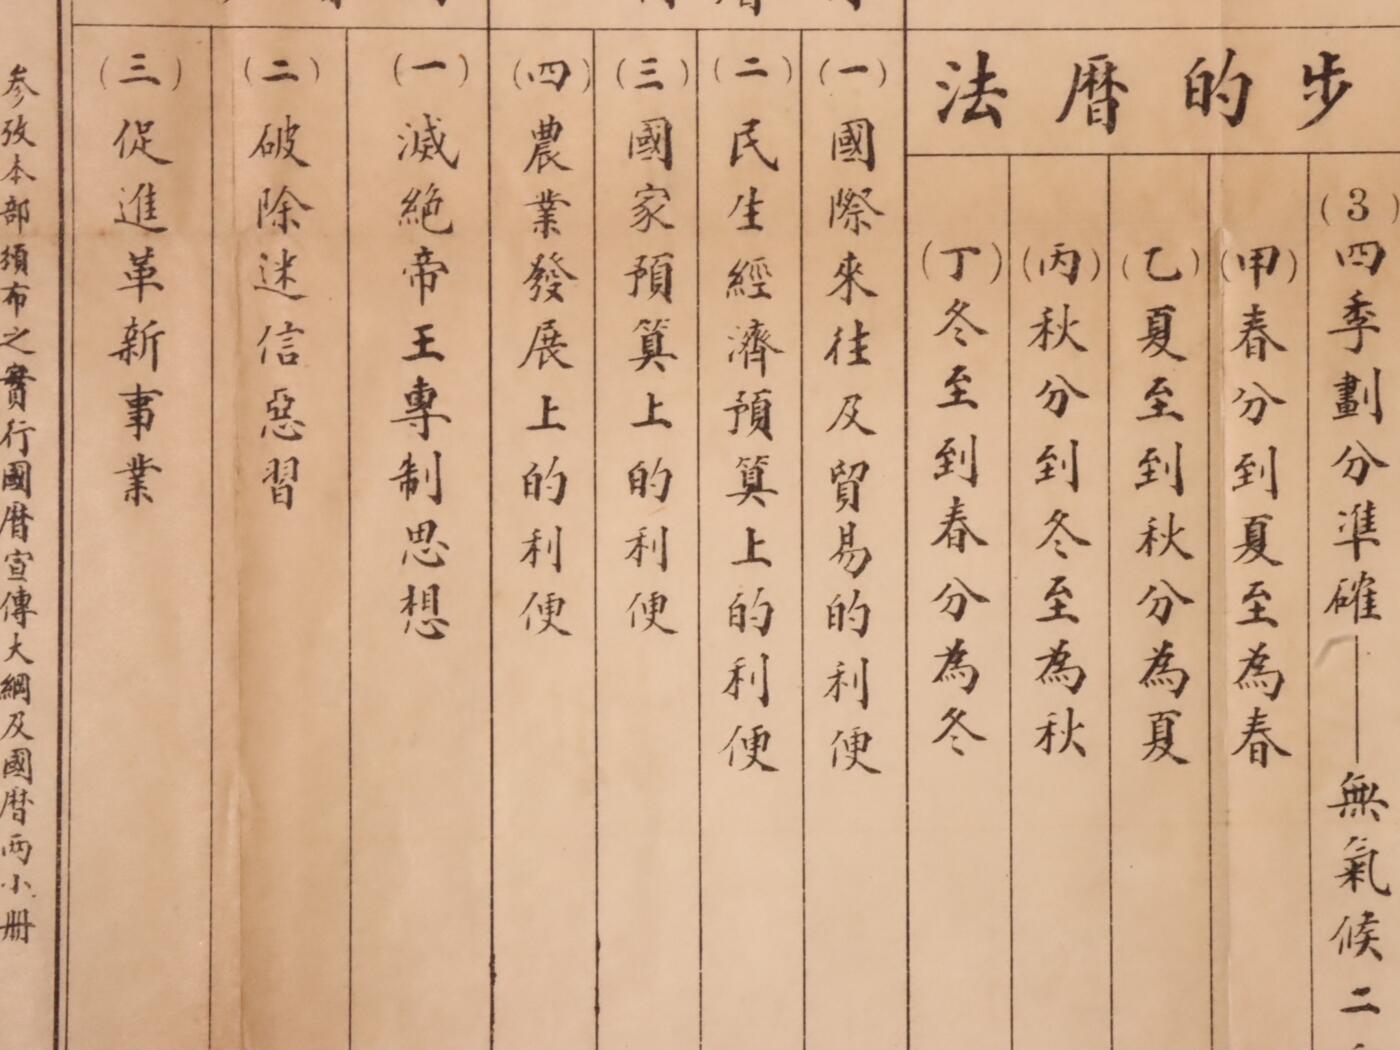 步的曆法
(3)四季劃分準確——無氣候二
(甲)春分到夏至為春
(乙)夏至到秋分為夏
(丙)秋分到冬至為秋
(丁)冬至到春分為冬
(一)國際來往及貿易的利便
(二)民生經濟預算上的利便
(三)國家預算上的利便
(四)農業發展上的利便
(一)滅絕帝王專制思想
(二)破除迷信惡習
(三)促進革新事業
参攷本部須布之實行國曆宣傳大綱及國曆両小册